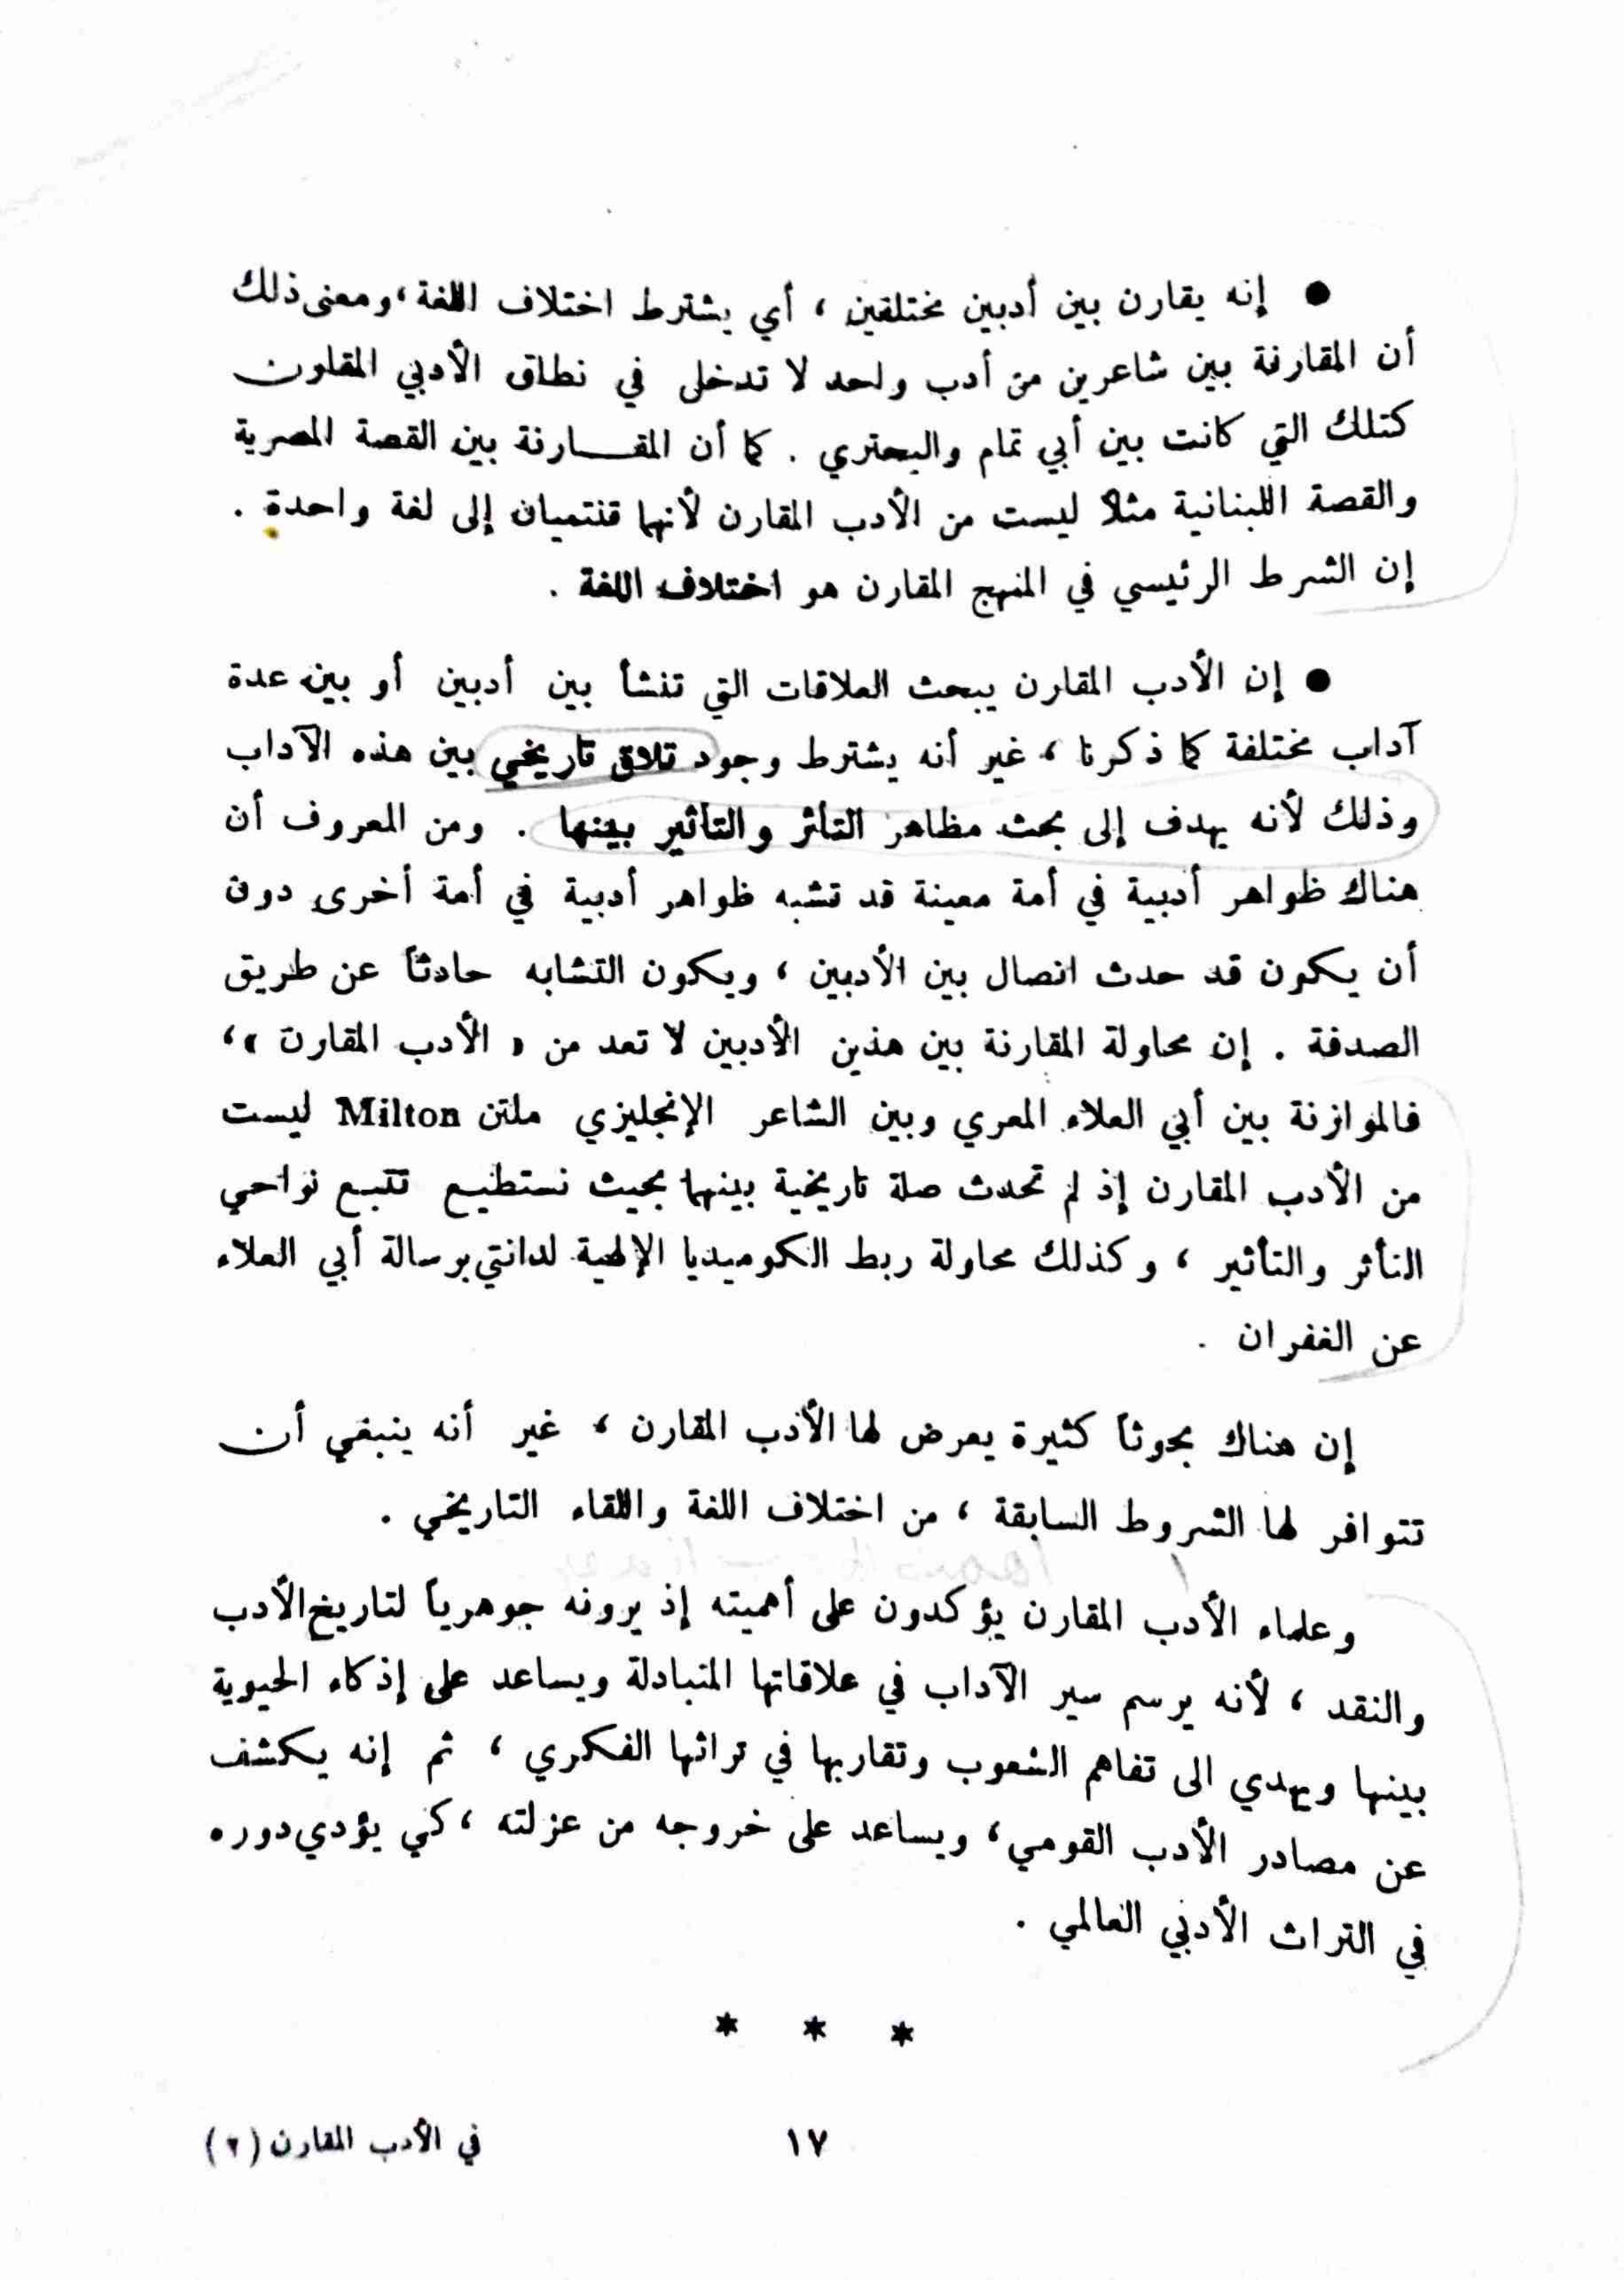 ● إنه يقارن بين أدبين مختلفين ، أي يشترط اختلاف اللغة ، ومعنى ذلك
أن المقارنة بين شاعرين من أدب واحد لا تدخل في نطاق الأدبي المقارن
كتلك التي كانت بين أبي تمام والبحتري . كما أن المقـــارنة بين القصة المصرية
والقصة اللبنانية مثلاً ليست من الأدب المقارن لأنهما تنتميان إلى لغة واحدة .
إن الشرط الرئيسي في المنهج المقارن هو اختلاف اللغة .
● إن الأدب المقارن يبحث العلاقات التي تنشأ بين أدبين أو بين عدة
آداب مختلفة كما ذكرنا ، غير أنه يشترط وجود تلاق تاريخي بين هذه الآداب
وذلك لأنه يهدف إلى بحث مظاهر التأثر والتأثير بينها . ومن المعروف أن
هناك ظواهر أدبية في أمة معينة قد تشبه ظواهر أدبية في أمة أخرى دون
أن يكون قد حدث اتصال بين الأدبين ، ويكون التشابه حادثاً عن طريق
الصدفة . إن محاولة المقارنة بين هذين الأدبين لا تعد من « الأدب المقارن » ،
فالموازنة بين أبي العلاء المعري وبين الشاعر الإنجليزي ملتن Milton ليست
من الأدب المقارن إذ لم تحدث صلة تاريخية بينهما بحيث نستطيع تتبع نواحي
التأثر والتأثير ، وكذلك محاولة ربط الكوميديا الإلهية لدانتي برسالة أبي العلاء
عن الغفران .
إن هناك بحوثاً كثيرة يعرض لها الأدب المقارن ، غير أنه ينبغي أن
تتوافر لها الشروط السابقة ، من اختلاف اللغة واللقاء التاريخي .
وعلماء الأدب المقارن يؤكدون على أهميته إذ يرونه جوهرياً لتاريخ الأدب
والنقد ، لأنه يرسم سير الآداب في علاقاتها المتبادلة ويساعد على إذكاء الحيوية
بينها ويهدي الى تفاهم الشعوب وتقاربها في تراثها الفكري ، ثم إنه يكشف
عن مصادر الأدب القومي ، ويساعد على خروجه من عزلته ، كي يؤدي دوره
في التراث الأدبي العالمي .
* * *
١٧
في الأدب المقارن (٢)